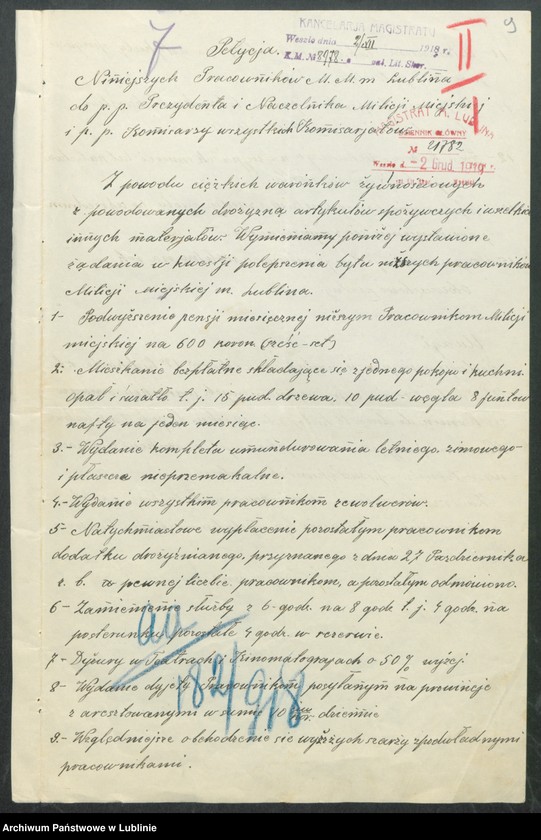 9
KANCELARJA MAGISTRATU
II
7
Weszło dnia 2/XII 1918 r.
K. M. № 8972 zał. Lit. Sker.
Petycja.
Niniejszych Pracowników M. M. m Lublina
do p. p. Prezydenta i Naczelnika Milicji Miejskiej
i p. p. Komiarzy wszystkich Komisarjatów
MAGISTRAT M. LUBLINA
DZIENNIK GŁÓWNY
№ 21782
Weszło d. -2 Grud. 1918 r.
Z powodu ciężkich warónków żywnościowych
z powodowanych drożyzną artykułów spożywczych i wszelkich
innych materjałów. Wymieniamy poniżej wystawione
rządania w kwestji polepszenia bytu niższych pracowników
Milicji Miejskiej m. Lublina.
1- Podwyższenie pensji miesięcznej niższym Pracownikom Milicji
miejskiej na 600 koron (sześć-set)
2. Mieszkanie bezpłatne składające się z jednego pokoju i kuchni
opał i światło t. j. 15 pud. drzewa, 10 pud- węgla 8 funtów
nafty na jeden miesiąc.
3.- Wydanie kompleta umundurowania letniego, zimowego
i płaszcza nieprzemakalne.
4.- Wydanie wszystkim pracownikom rewolwerów.
5- Natychmiastowe wypłacenie pozostałym pracownikom
dodatku drożyźnianego, przyznanego z dnia 27 Pazdziernika
r. b. za pewnej liczbie pracownikom, a pozostałym odmówiono.
6- Zamienienie służby z 6-godz. na 8 godz t. j. 4 godz. na
posterunku, pozostałe 4 godz. w rezerwie.
7- Dyżury w Teatrach i Kinematografach o 50% wyżej.
8- Wydanie dyjety Pracownikom, posyłanym na prowincje
z aresztowanymi w sumie 10 kor. dziennie
9.- Względniejsze obchodzenie się wyższych szarży z podwładnymi
pracownikami.
aa
182/918
Archiwum Państwowe w Lublinie